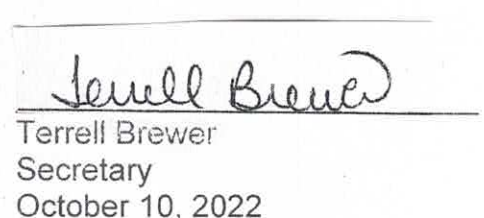 Terrell Brewer
Terrell Brewer
Secretary
October 10, 2022